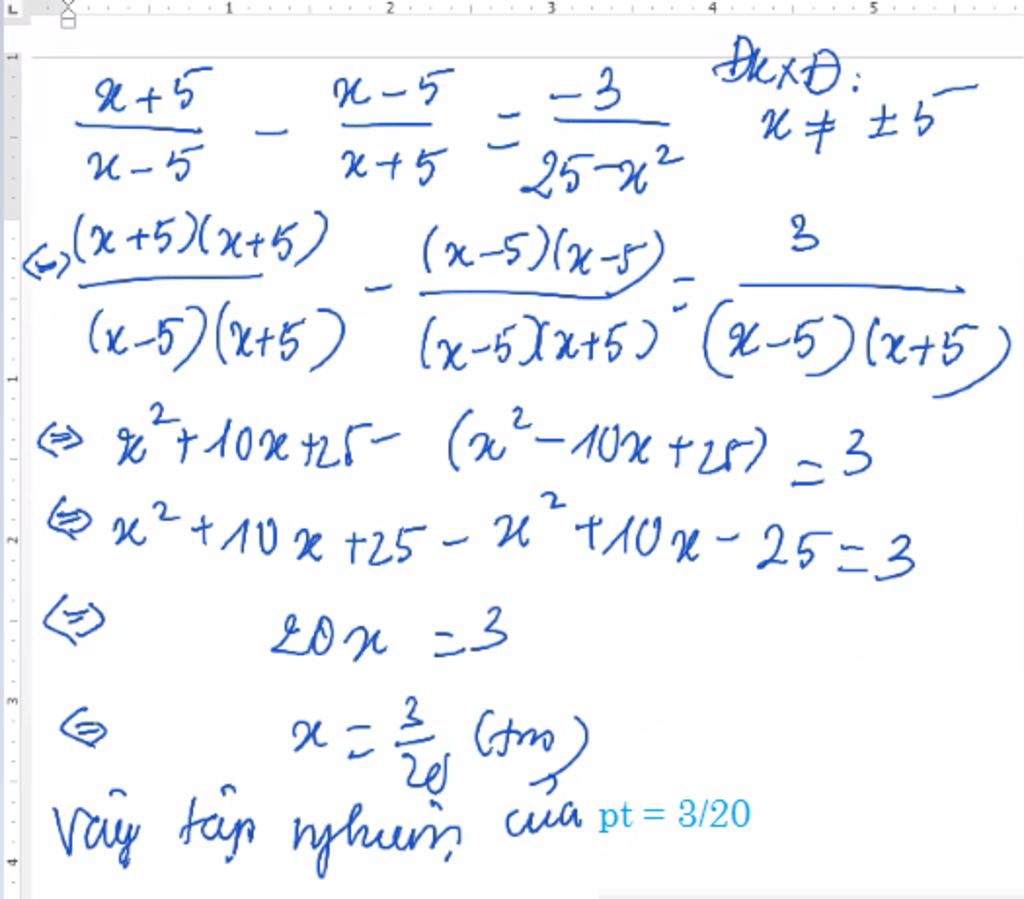 1 2 3 4 5
ĐKXĐ:
(x+5)/(x-5) - (x-5)/(x+5) = -3/(25-x²) x ≠ ±5
⇔ (x+5)(x+5)/(x-5)(x+5) - (x-5)(x-5)/(x-5)(x+5) = 3/(x-5)(x+5)
⇔ x²+10x+25 - (x²-10x+25) = 3
⇔ x²+10x+25 - x²+10x - 25 = 3
⇔ 20x = 3
⇔ x = 3/20 (tm)
Vậy tập nghiệm của pt = 3/20